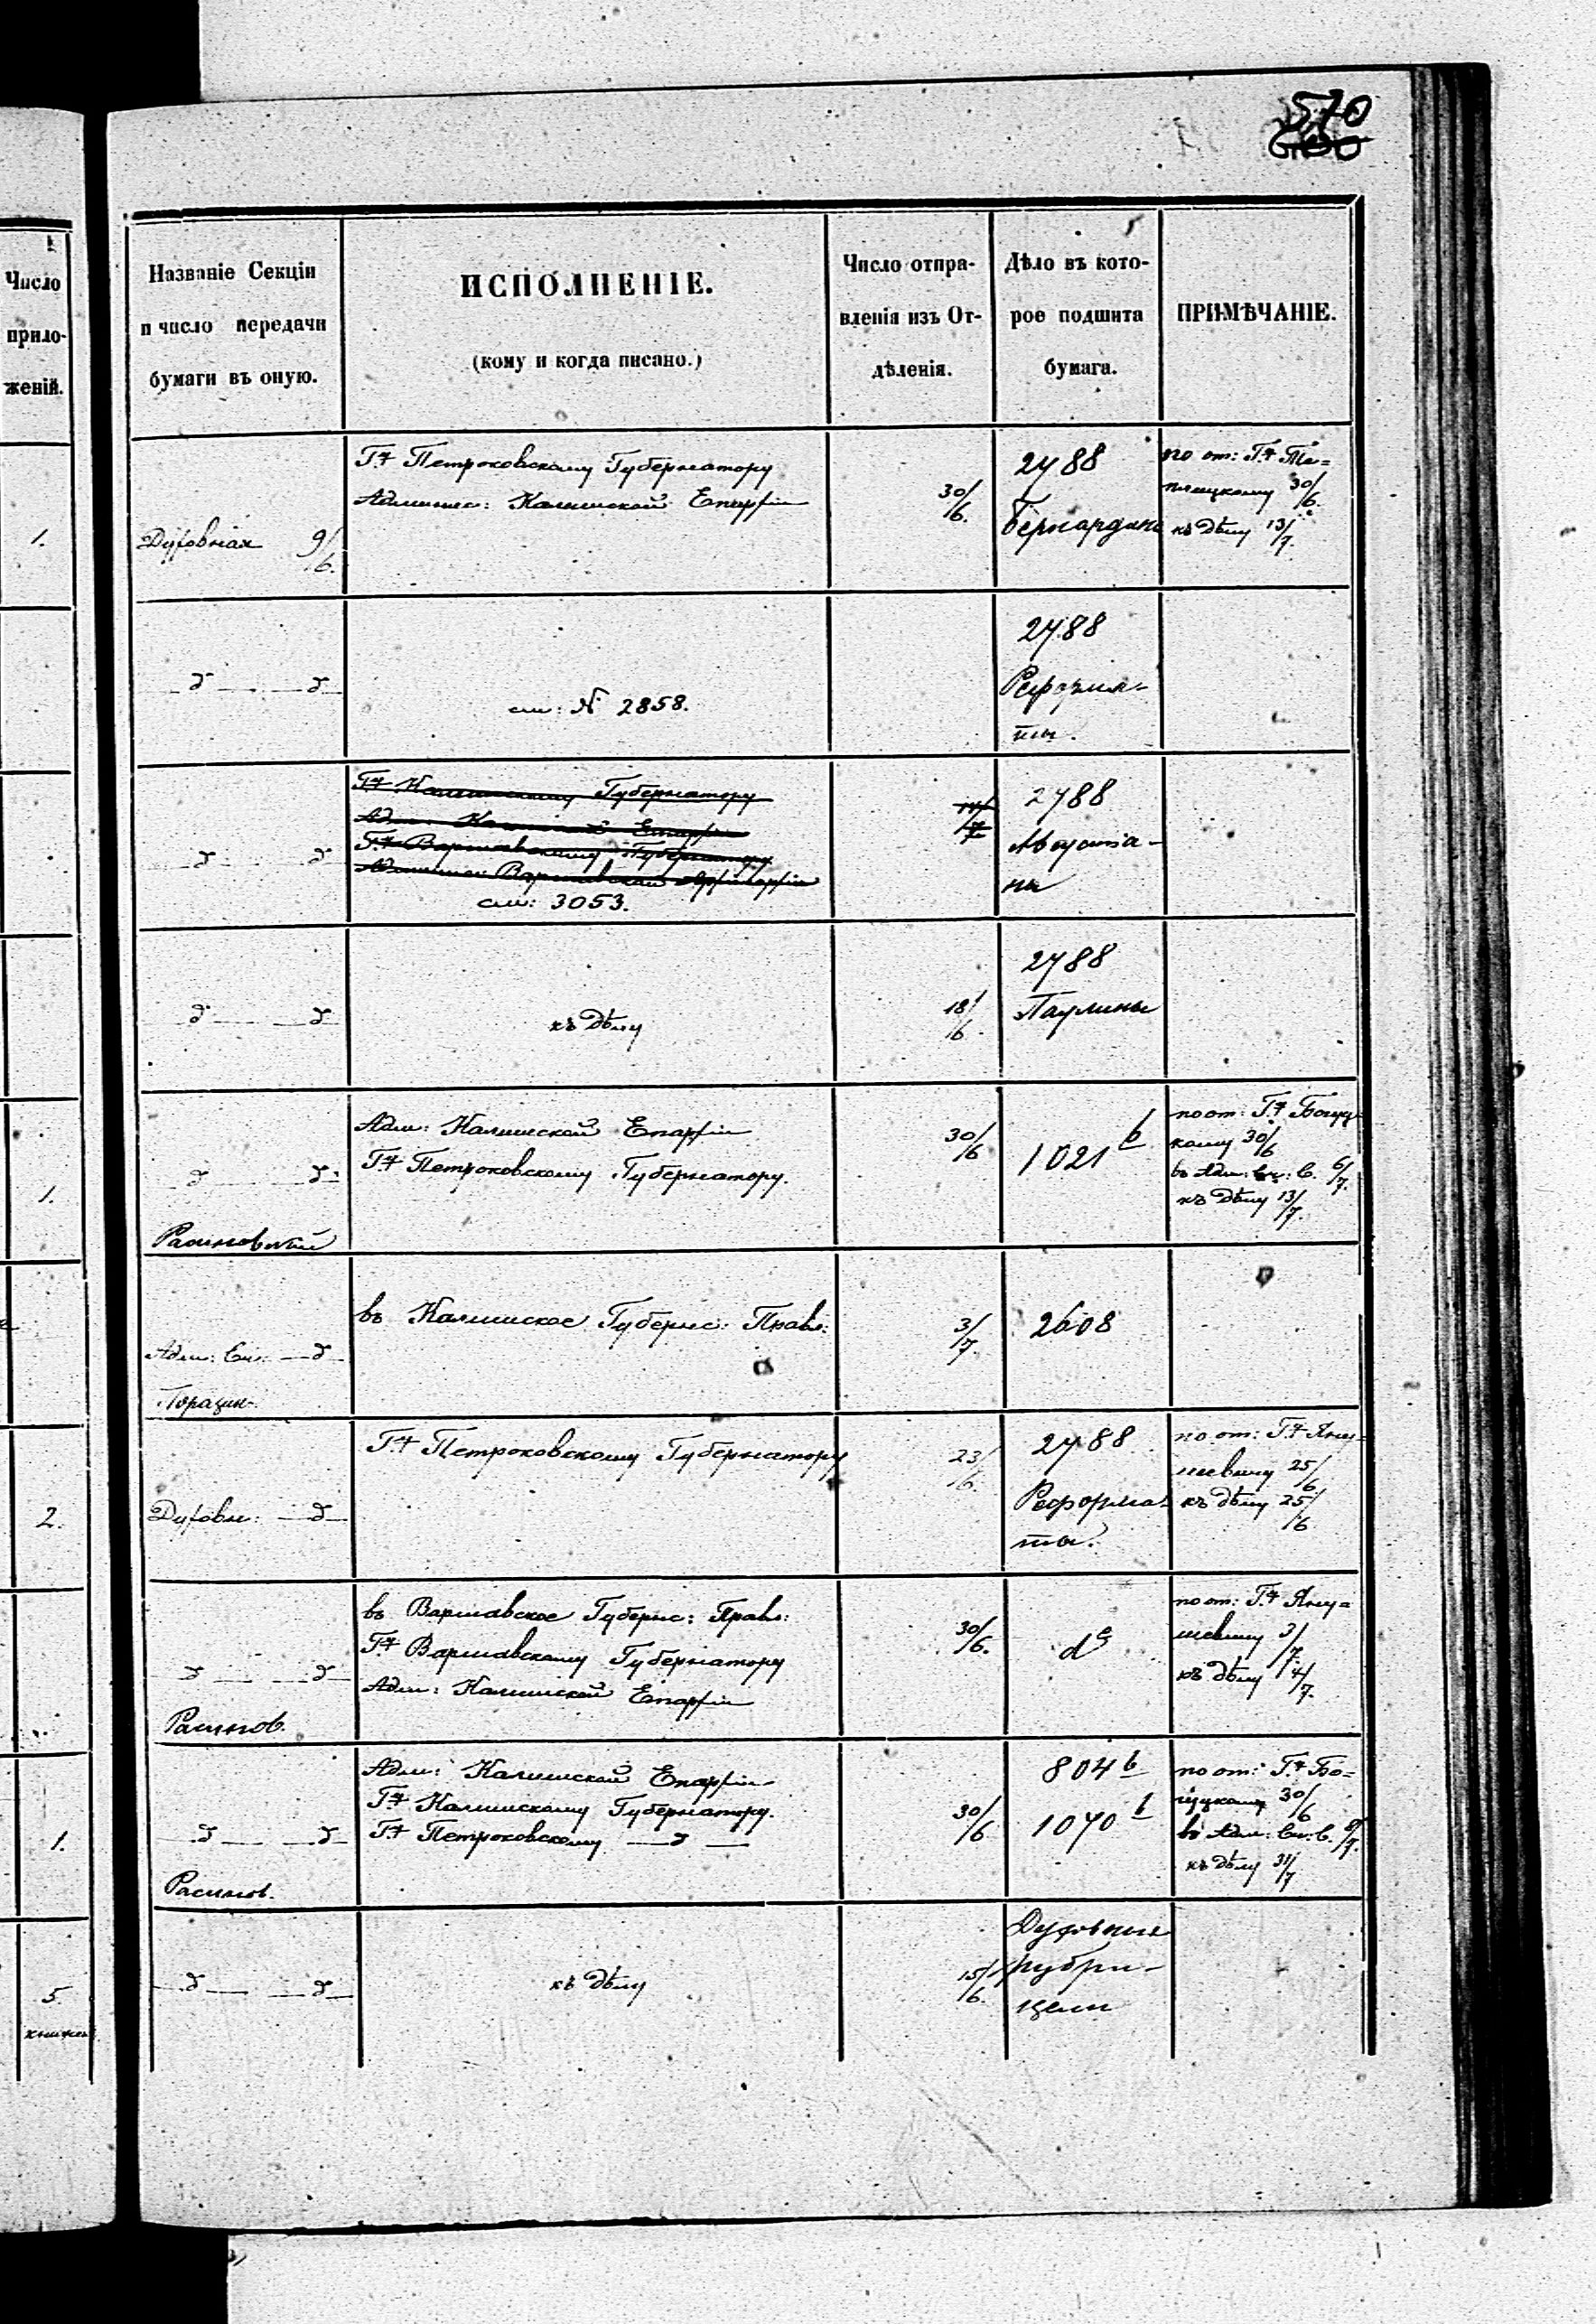 570
Число
прило-
женій.
Названіе Секціи
и число передачи
бумаги въ оную.
ИСПОЛНЕНІЕ.
(кому и когда писано.)
Число отпра-
вленія изъ От-
дѣленія.
Дѣло въ кото-
рое подшита
бумага.
ПРИМѢЧАНІЕ.
1.
Духовная 9/6.
Г. Петроковскому Губернатору
Админис: Калишской Епархіи
30/6.
2788
Бернардины
по от: Г.
30/6.
къ дѣлу 13/7.
д — д
см: № 2858.
2788
Реформа-
ты.
д — д
Г. Калишскому Губернатору
Адм: Калишской Епархіи
Г. Варшавскому Губернатору
Админис: Варшавской Архіепархіи
см: 3053.
2788
Августіа-
ны
д — д
къ дѣлу
18/6
2788
Паулины
1.
д — д
Адм: Калишской Епархіи
Г. Петроковскому Губернатору.
30/6
1021 b
по от: Г.
кому 30/6
въ Адм: С. 6/7.
къ дѣлу 13/7.
Адм: Ск: — д
въ Калишское Губерн: Правл:
3/7.
2608
2.
Духовн: — д
Г. Петроковскому Губернатору
23/6.
2788
Реформа-
ты.
по от: Г. Яну-
шевичу 25/6
къ дѣлу 25/6
д — д
въ Варшавское Губерн: Правл:
Г. Варшавскому Губернатору
Адм: Калишской Епархіи
30/6.
dº
по от: Г. Яну-
шевичу 3/7.
къ дѣлу 4/7.
1.
д — д
Адм: Калишской Епархіи
Г. Калишскому Губернатору.
Г. Петроковскому — д —
30/6
804 b
1070 b
по от: Г. Бо-
30/6
въ Адм: Ск: С.
къ дѣлу 31/7
5.
книжекъ
д — д
къ дѣлу
15/6.
Духовныя
рубри-
цели